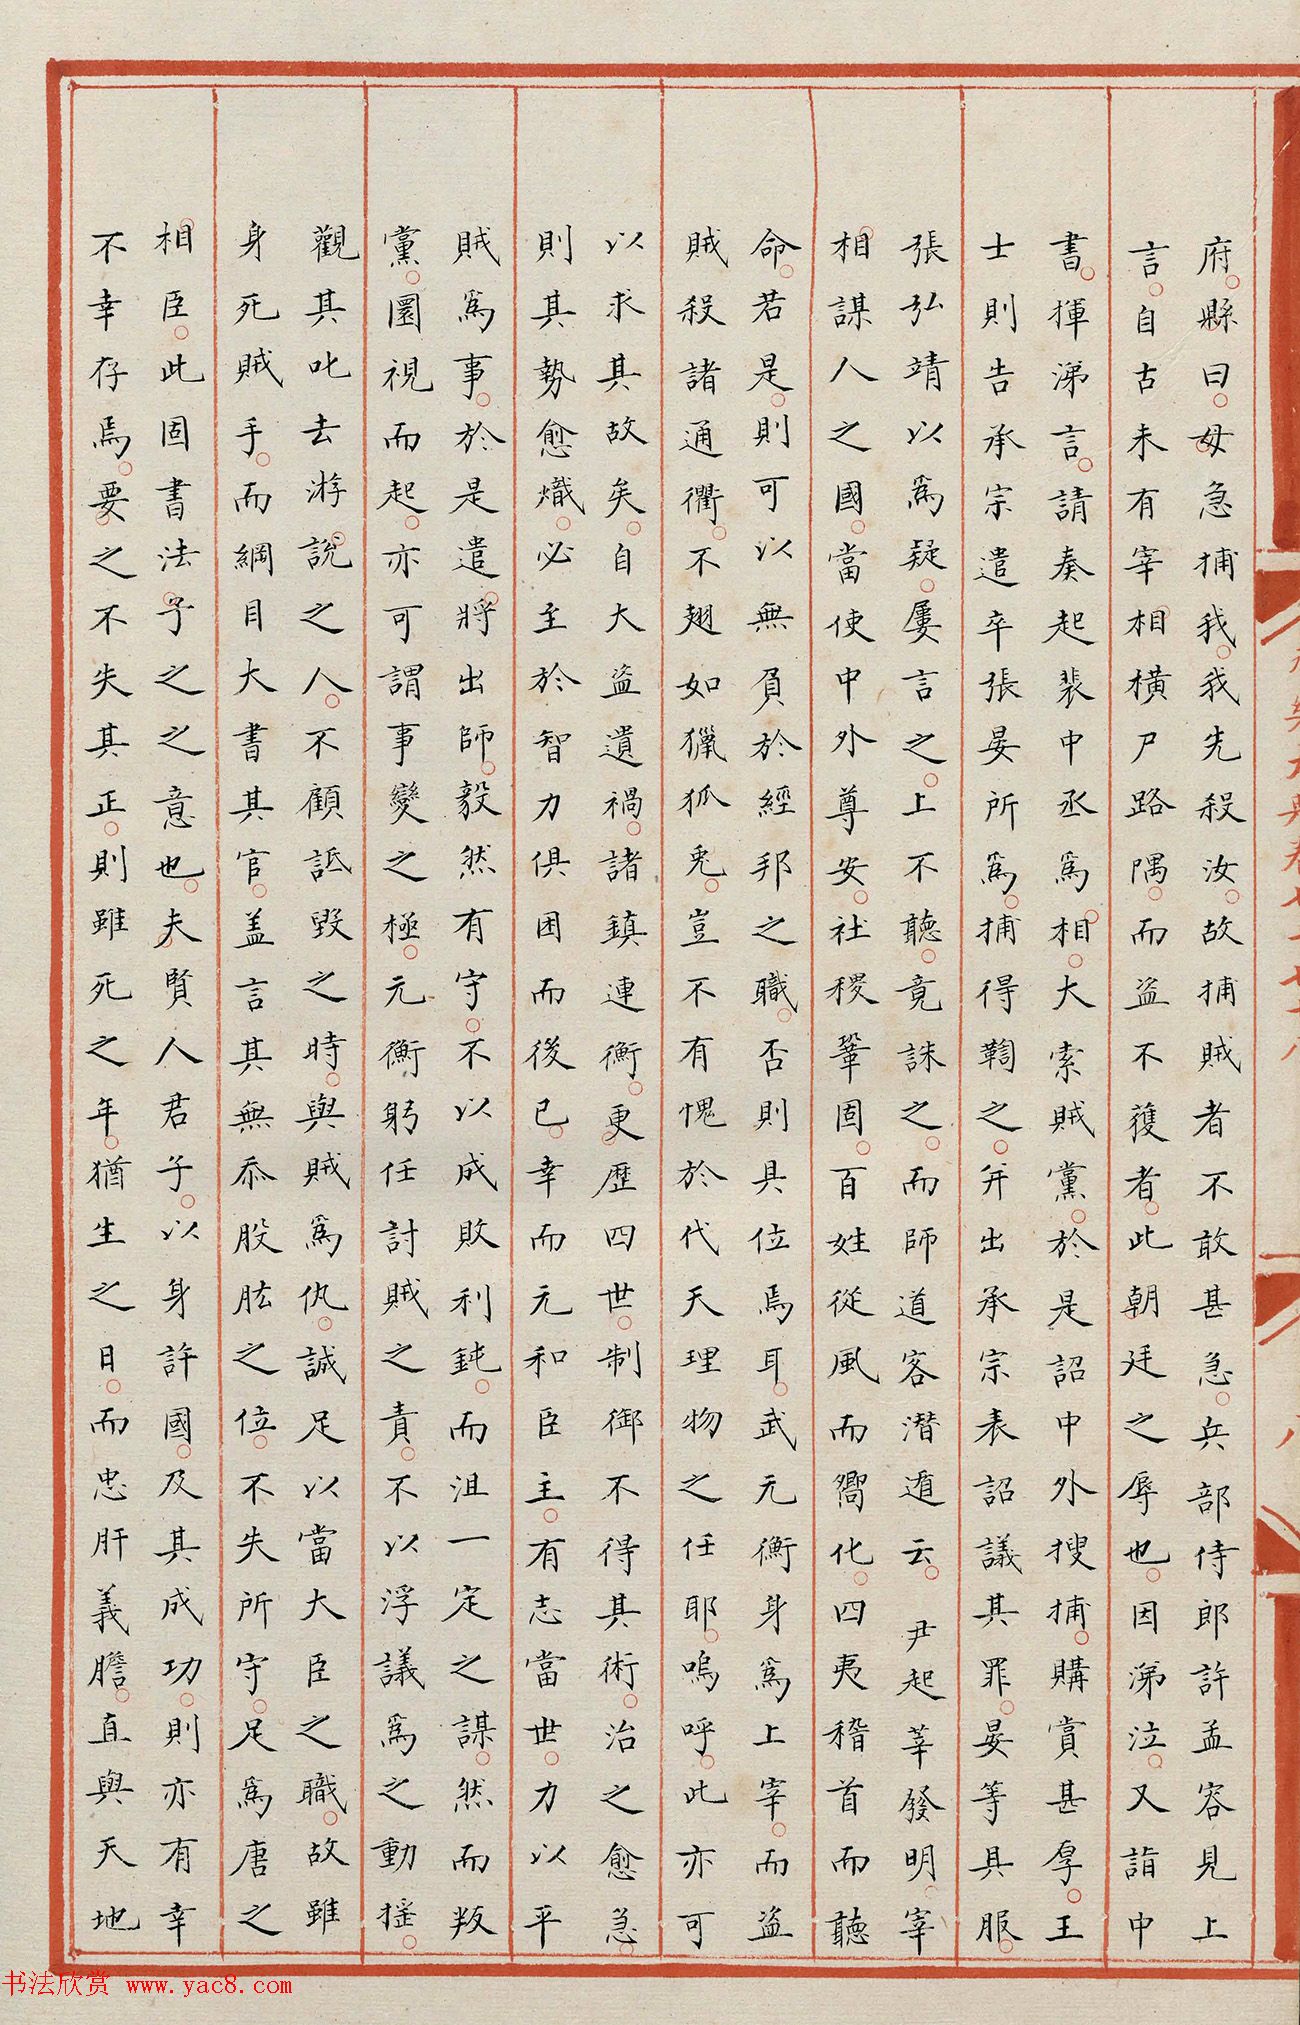 府縣曰毋急捕我我先殺汝故捕賊者不敢甚急兵部侍郎許孟容見上
言自古未有宰相橫尸路隅而盜不獲者此朝廷之辱也因涕泣又詣中
書揮涕言請奏起裴中丞爲相大索賊黨於是詔中外搜捕購賞甚厚王
士則告承宗遣卒張晏所爲捕得鞫之并出承宗表詔議其罪晏等具服
張弘靖以爲疑屢言之上不聽竟誅之而師道客潛遁云 尹起莘發明宰
相謀人之國當使中外尊安社稷鞏固百姓從風而嚮化四夷稽首而聽
命若是則可以無負於經邦之職否則具位焉耳武元衡身爲上宰而盜
賊殺諸通衢不翅如獵狐兎豈不有愧於代天理物之任耶嗚呼此亦可
以求其故矣自大盜遺禍諸鎮連衡更歷四世制御不得其術治之愈急
則其勢愈熾必至於智力俱困而後已幸而元和臣主有志當世力以平
賊爲事於是遣將出師毅然有守不以成敗利鈍而沮一定之謀然而叛
黨圜視而起亦可謂事變之極元衡躬任討賊之責不以浮議爲之動搖
觀其叱去游說之人不顧詆毀之時與賊爲仇誠足以當大臣之職故雖
身死賊手而綱目大書其官盖言其無忝股肱之位不失所守足爲唐之
相臣此固書法予之之意也夫賢人君子以身許國及其成功則亦有幸
不幸存焉要之不失其正則雖死之年猶生之日而忠肝義膽直與天地
永樂大典卷七千七百
八
书法欣赏 www.yac8.com